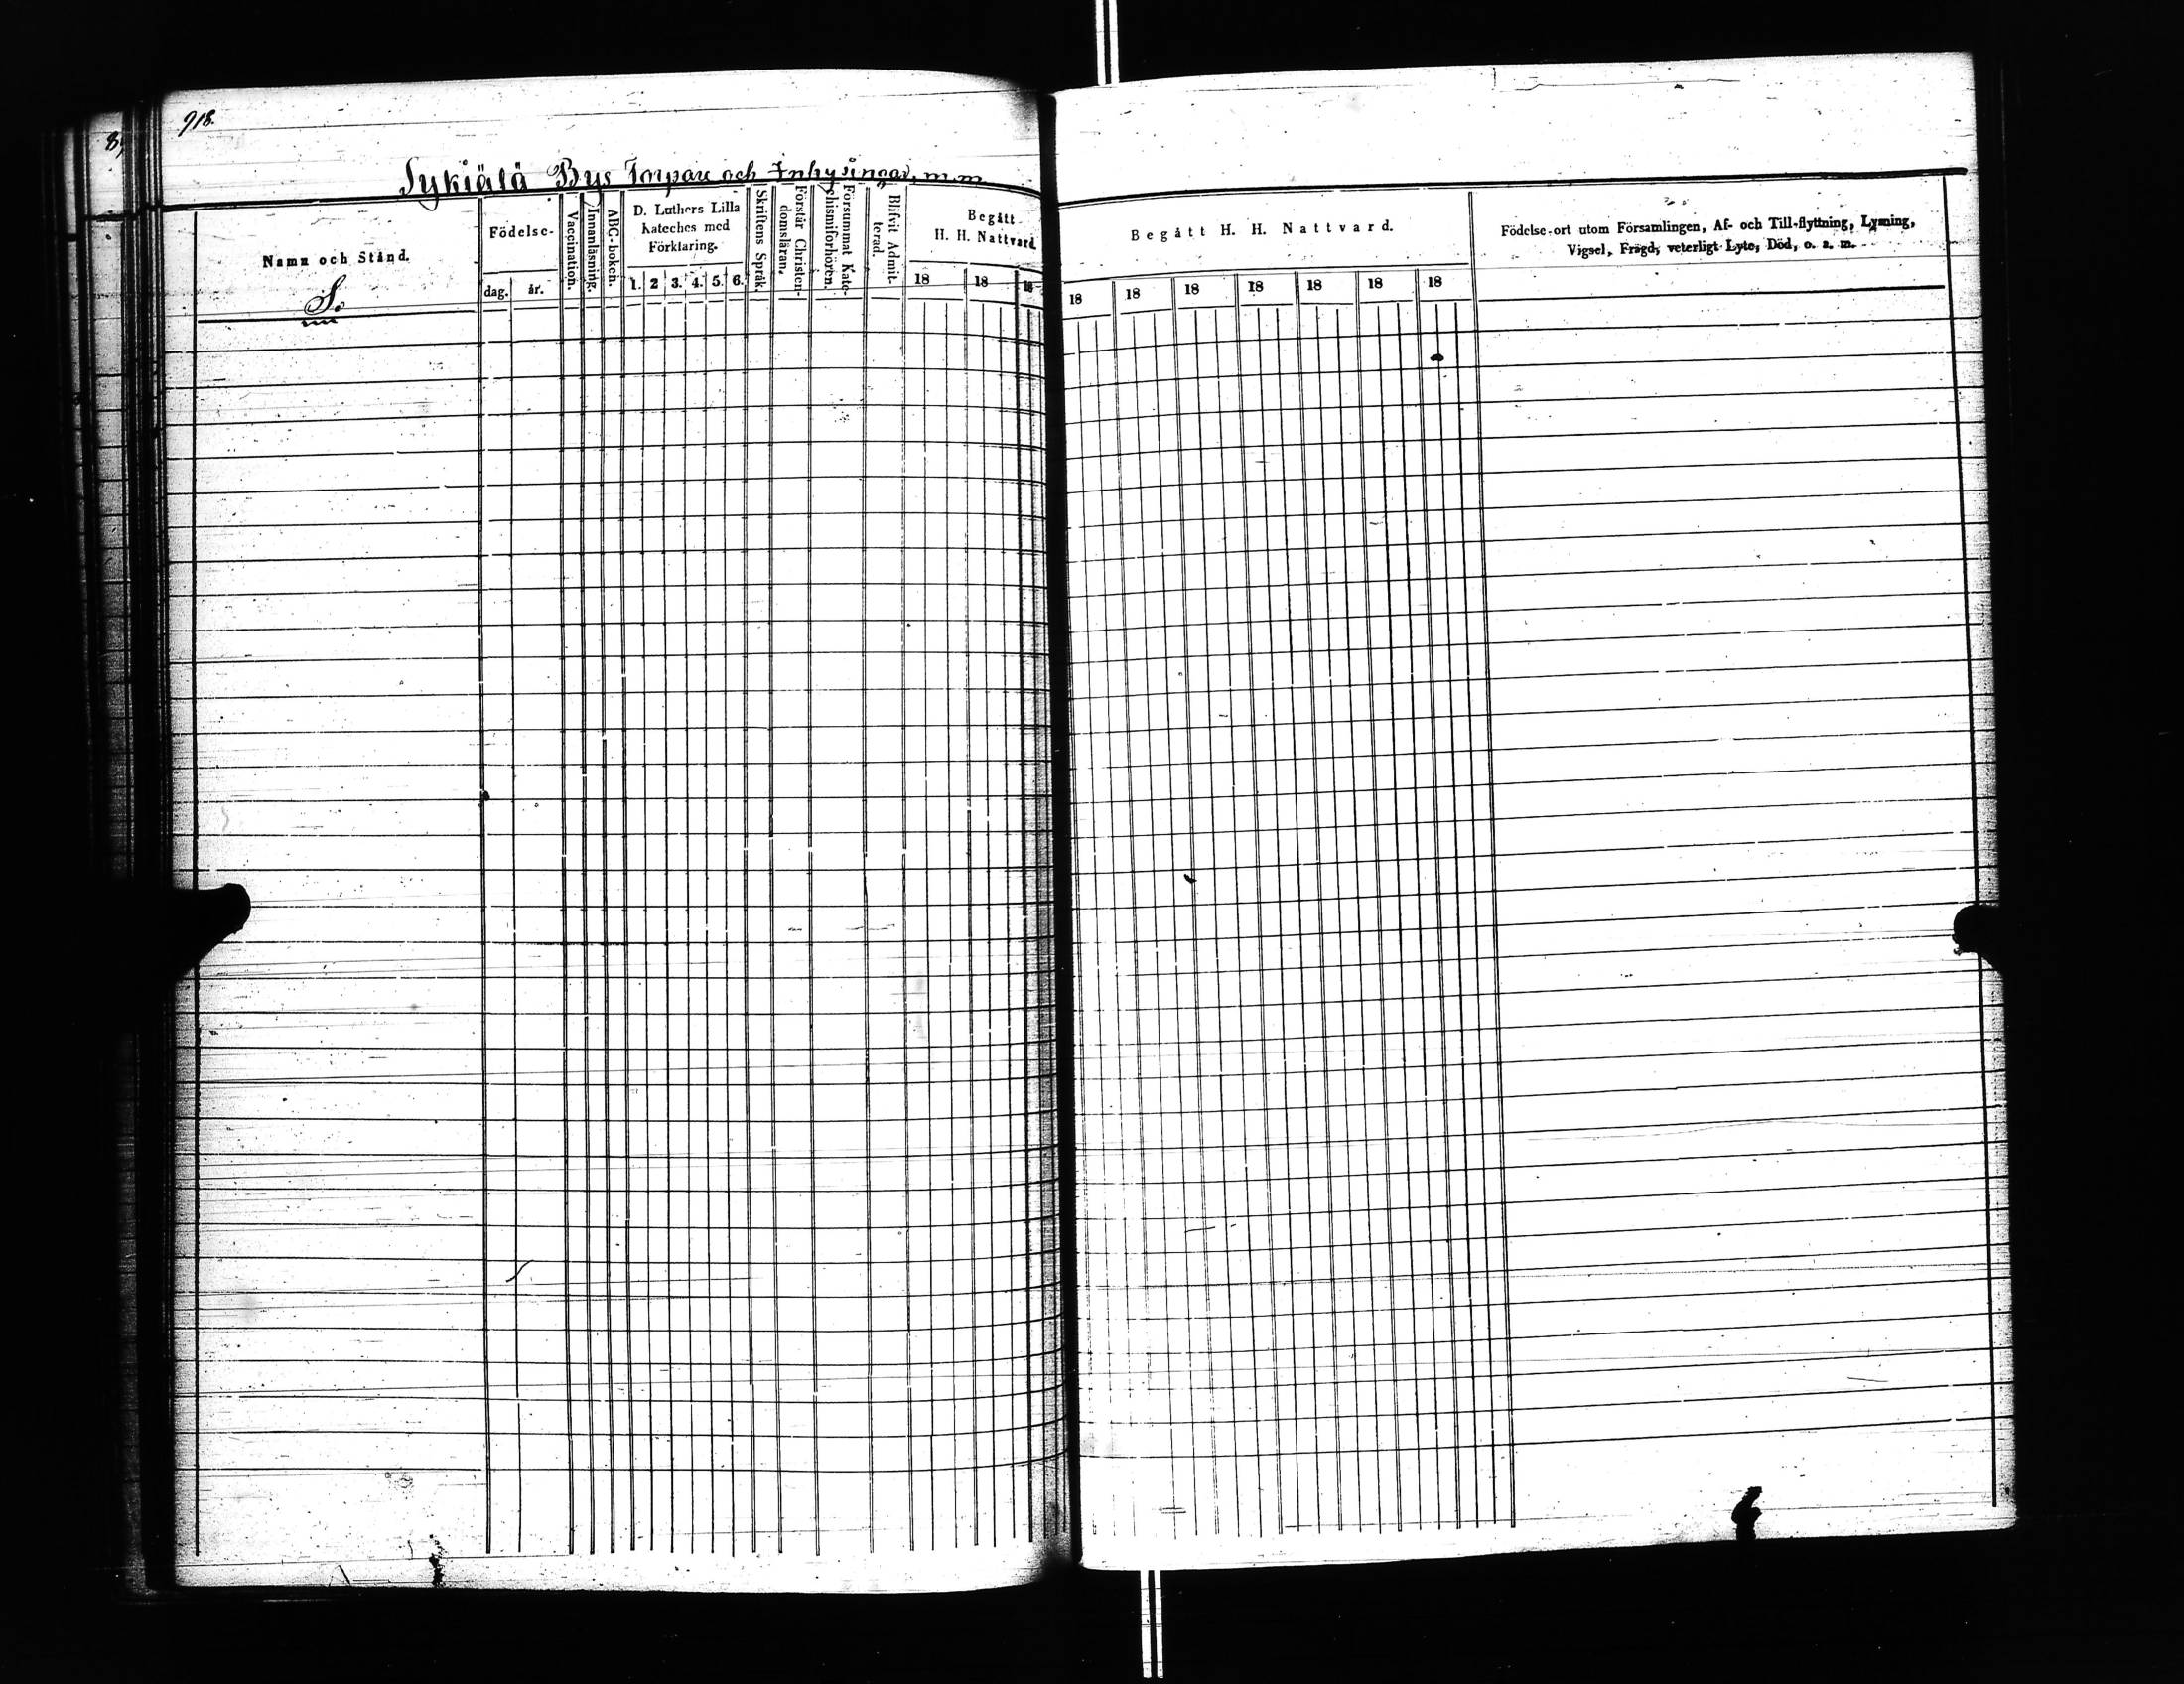 918.
Sykiälä Bys Torpare och Inhysingar, m.m.
Namn och Stånd.
S.
Födelse-
dag.
år.
Vaccination.
Innanläsning.
ABC-boken.
D. Luthers Lilla
Kateches med
Förklaring.
1. 2 3. 4. 5. 6.
Skriftens Språk.
Förstår Christen-
domsläran.
Försummat Kate-
chismiförhören.
Blifvit Admit-
terad.
Begått
H. H. Nattvard.
18 18 18
Begått H. H. Nattvard.
18 18 18 18 18 18 18
Födelse-ort utom Församlingen, Af- och Till-flyttning, Lysning,
Vigsel, Frägd, veterligt Lyte, Död, o. s. m.